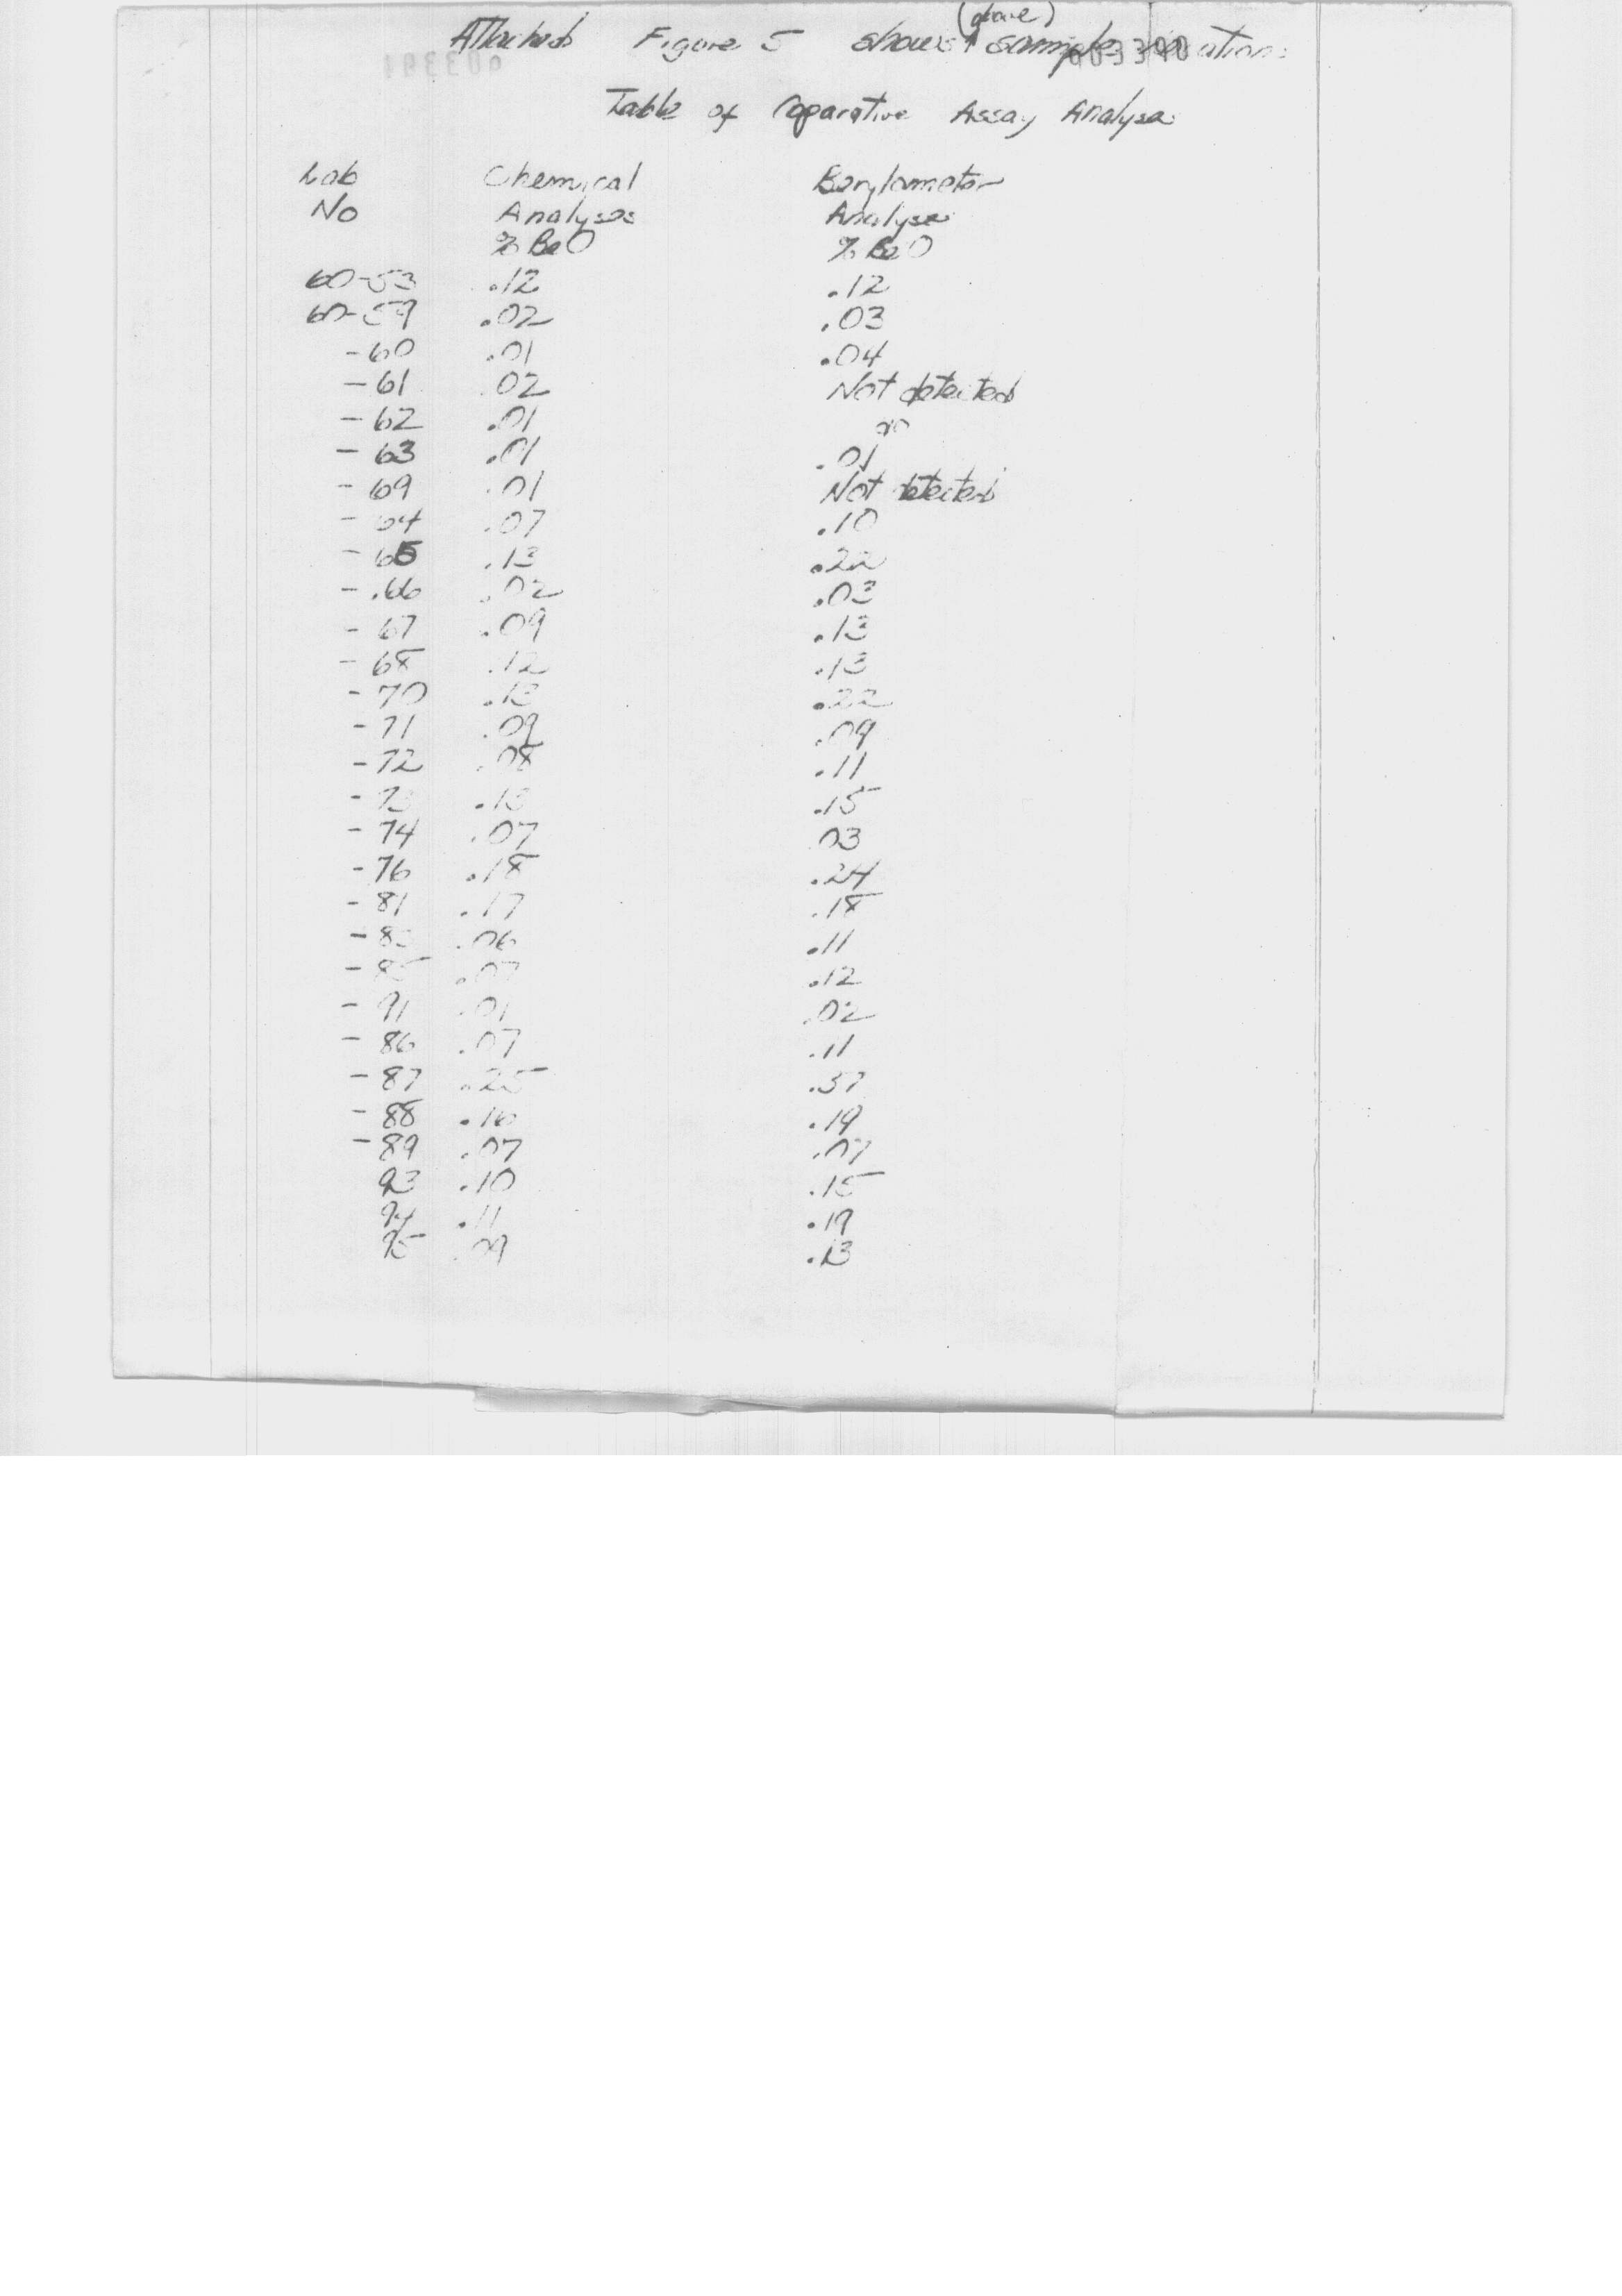 (above)
Attached Figure 5 shows sample locations
003390
Table of Coparative Assay Analyses
Lab Chemical Berylometer
No Analyses Analyses
% BeO % BeO
60-53 .12 .12
60-59 .02 .03
-60 .01 .04
-61 .02 Not detected
-62 .01 do
-63 .01 .01
-69 .01 Not detected
-64 .07 .10
-65 .13 .22
-.66 .02 .03
-67 .09 .13
-68 .12 .13
-70 .13 .22
-71 .09 .09
-72 .08 .11
-73 .15
-74 .07 .03
-76 .18 .24
-81 .17 .18
.06 .11
-85 .07 .12
-91 .01 .02
-86 .07 .11
-87 .25 .37
-88 .16 .19
-89 .07 .07
93 .10 .15
94 .11 .19
95 .09 .13